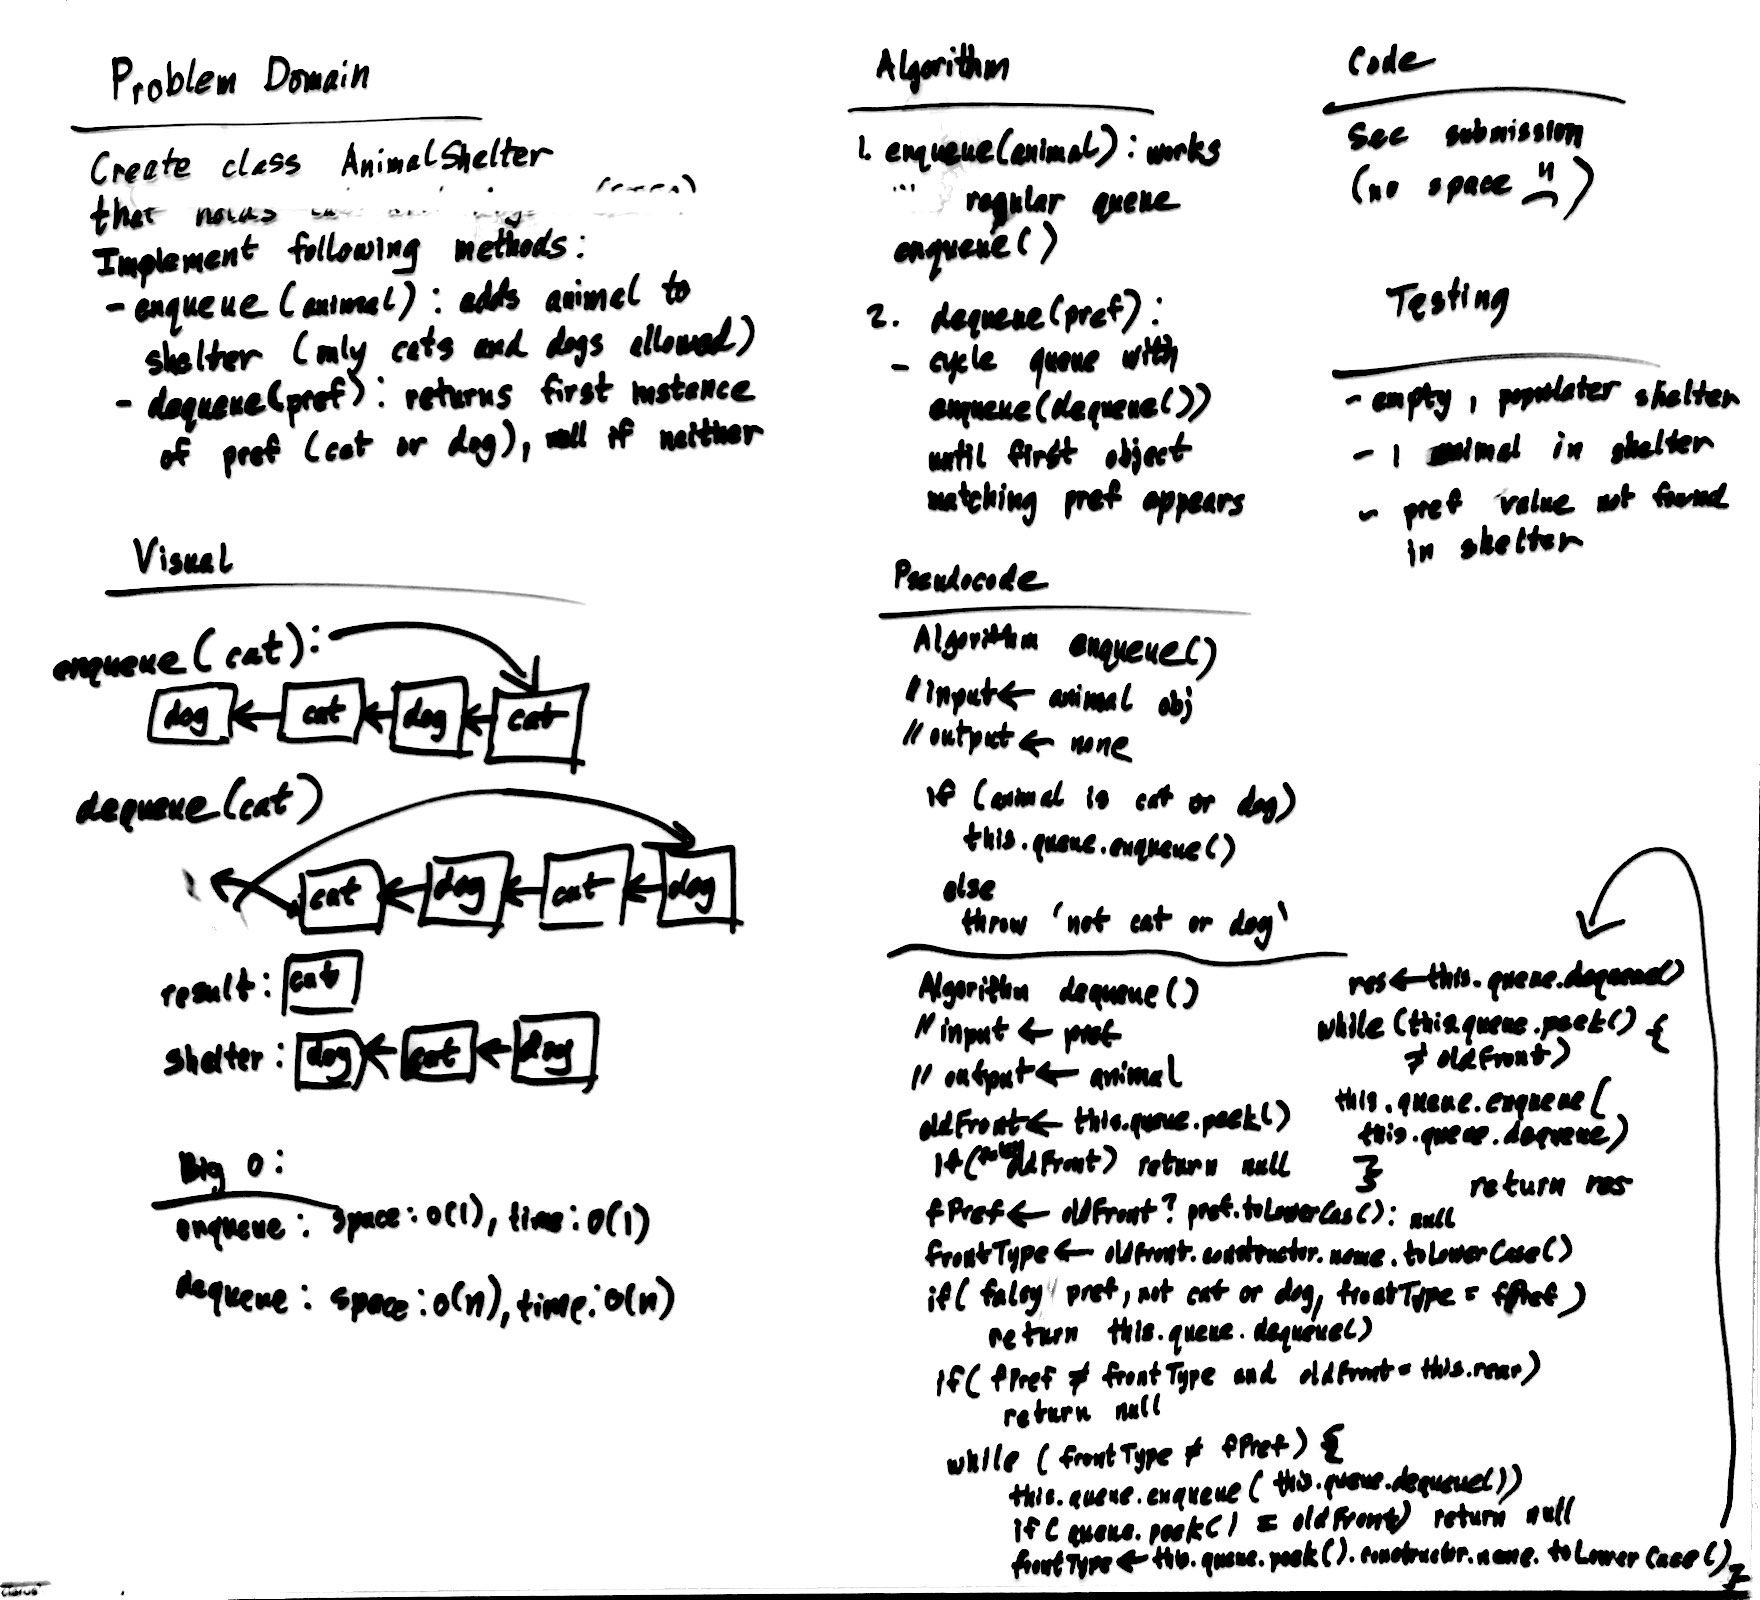 Problem Domain
Create class AnimalShelter
that holds
Implement following methods:
- enqueue (animal) : adds animal to
shelter (only cats and dogs allowed)
- dequeue(pref) : returns first instance
of pref (cat or dog), null if neither
Visual
enqueue (cat):
dog ← cat ← dog ← cat
dequeue (cat)
cat ← dog ← cat ← dog
result: cat
shelter: dog ← cat ← dog
Big O:
enqueue : space : O(1), time : O(1)
dequeue : space : O(n), time : O(n)
Algorithm
1. enqueue(animal) : works
regular queue
enqueue()
2. dequeue(pref) :
- cycle queue with
enqueue(dequeue())
until first object
matching pref appears
Pseudocode
Algorithm enqueue()
// input ← animal obj
// output ← none
if (animal is cat or dog)
this.queue.enqueue()
else
throw 'not cat or dog'
Algorithm dequeue()
// input ← pref
// output ← animal
oldFront ← this.queue.peek()
if ( oldFront) return null
fPref ← oldFront ? pref.toLowerCas() : null
frontType ← oldFront.constructor.name.toLowerCase()
if ( falsy pref, not cat or dog, frontType = fPref )
return this.queue.dequeue()
if ( fPref ≠ frontType and oldFront = this.rear)
return null
while ( frontType ≠ fPref ) {
this.queue.enqueue ( this.queue.dequeue())
if ( queue.peek() = oldFront) return null
frontType ← this.queue.peek().constructor.name.toLowerCase() }
res ← this.queue.dequeue()
while (this.queue.peek() {
≠ oldFront)
this.queue.enqueue (
this.queue.dequeue)
}
return res
Code
See submission
(no space )
Testing
- empty, populater shelter
- 1 animal in shelter
- pref value not found
in shelter
clarus